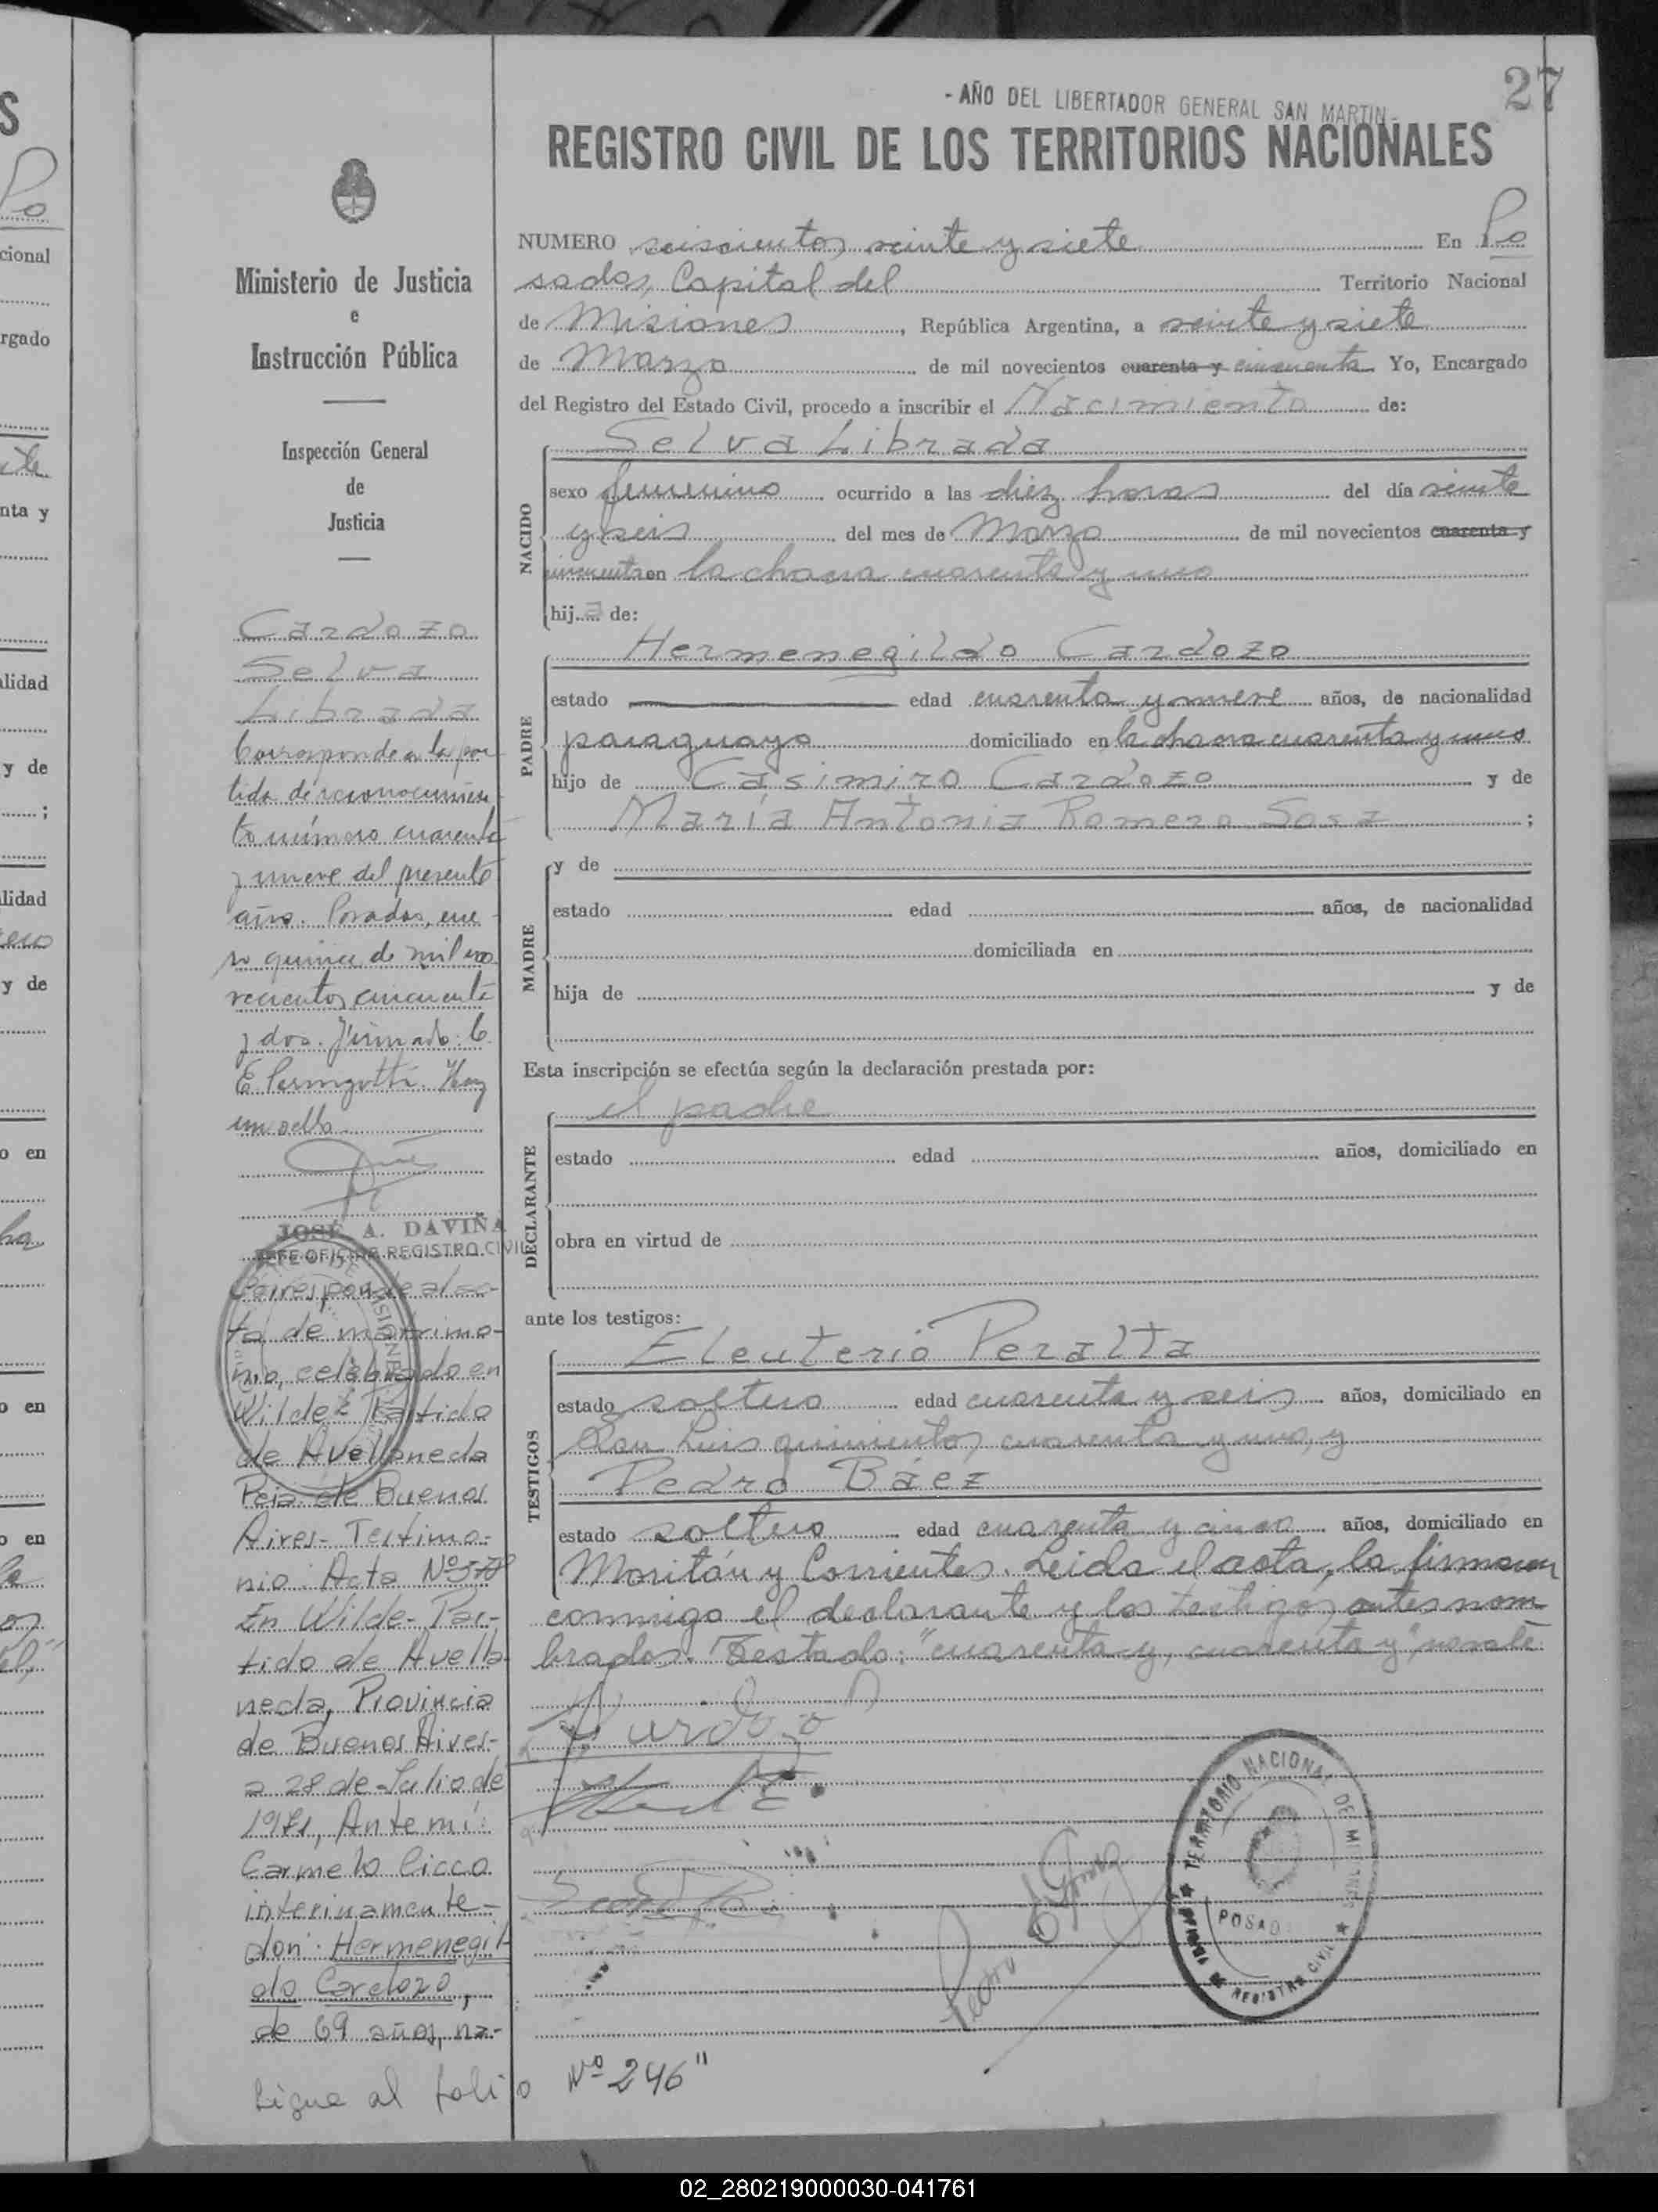 27
- AÑO DEL LIBERTADOR GENERAL SAN MARTIN -
REGISTRO CIVIL DE LOS TERRITORIOS NACIONALES
NUMERO seiscientos veinte y siete En Po
sadas, Capital del Territorio Nacional
de Misiones, República Argentina, a veinte y siete
de Marzo de mil novecientos cuarenta y cincuenta Yo, Encargado
del Registro del Estado Civil, procedo a inscribir el Nacimiento de:
NACIDO
Selva Librada
sexo femenino ocurrido a las diez horas del día veinte
y seis del mes de Marzo de mil novecientos cuarenta y
cincuenta en la chacra cuarenta y uno
hija de:
PADRE
Hermenegildo Cardozo
estado edad cuarenta y nueve años, de nacionalidad
paraguayo domiciliado en la chacra cuarenta y uno
hijo de Casimiro Cardozo y de
María Antonia Romero Sosa ;
MADRE
y de
estado edad años, de nacionalidad
domiciliada en
hija de y de
Esta inscripción se efectúa según la declaración prestada por:
DECLARANTE
el padre
estado edad años, domiciliado en
obra en virtud de
ante los testigos:
TESTIGOS
Eleuterio Peralta
estado soltero edad cuarenta y seis años, domiciliado en
San Luis quinientos cuarenta y uno, y
Pedro Báez
estado soltero edad cuarenta y cinco años, domiciliado en
Moritán y Corrientes. Leida el acta, la firmaron
conmigo el declarante y los testigos antes nom-
brados. Testado: "cuarenta y, cuarenta y" no vale
TERRITORIO NACIONAL DE MISIONES
POSADAS
REGISTRO CIVIL
Ministerio de Justicia
e
Instrucción Pública
Inspección General
de
Justicia
Cardozo
Selva
Librada
Corresponde a la par
tida de reconocimien-
to número cuarenta
y nueve del presente
año. Posadas, ene-
ro quince de mil no
vecientos cincuenta
y dos. Firmado: C.
E. Hay
un sello
JOSÉ A. DAVIÑA
JEFE OFICINA REGISTRO CIVIL
Corresponde al ac-
ta de matrimo-
nio, celebrado en
Wilde: Partido
de Avellaneda
Pcia de Buenos
Aires- Testimo-
nio: Acta Nº
En Wilde- Par-
tido de Avella
neda, Provincia
de Buenos Aires-
a 28 de Julio de
Ante mí:
Carmelo Cicco
interinamente-
don: Hermenegil-
do Cardozo,
de 69 años, na-
Sigue al folio Nº 246"
S
Po
cional
rgado
nta y
alidad
y de
;
alidad
y de
o en
o en
o en
02_280219000030-041761